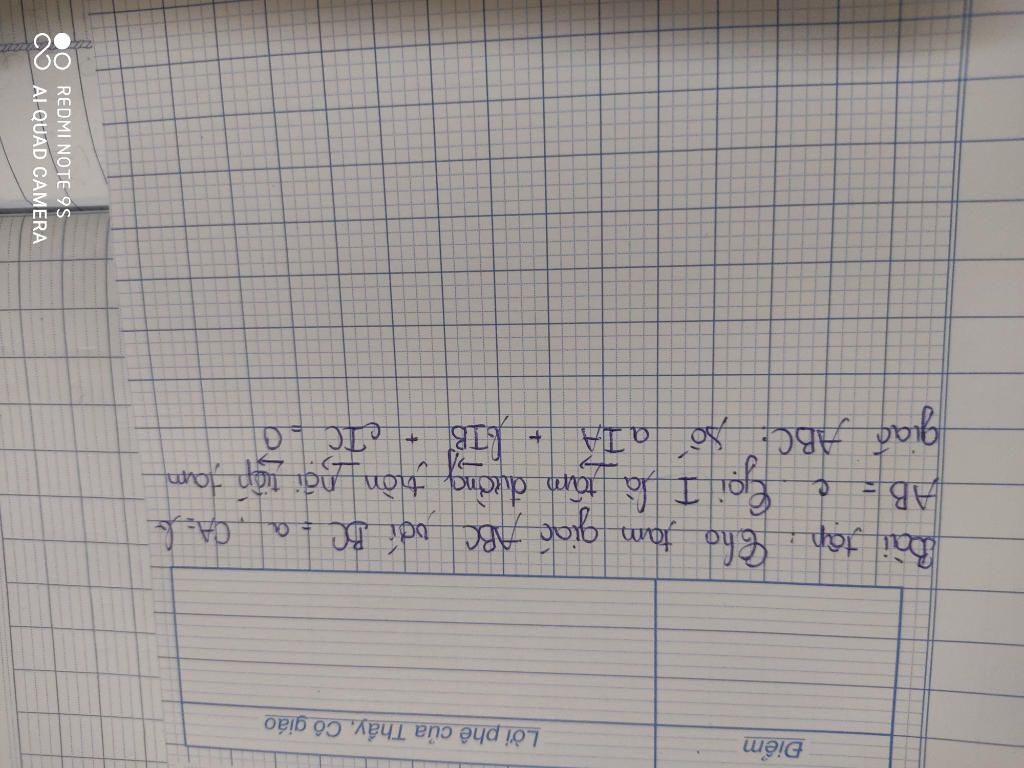 Điểm
Lời phê của Thầy, Cô giáo
Bài tập: Cho tam giác ABC với BC = a, CA = b
AB = c. Gọi I là tâm đường tròn nội tiếp tam
giác ABC. aIA + bIB + cIC = 0
REDMI NOTE 9S
AI QUAD CAMERA